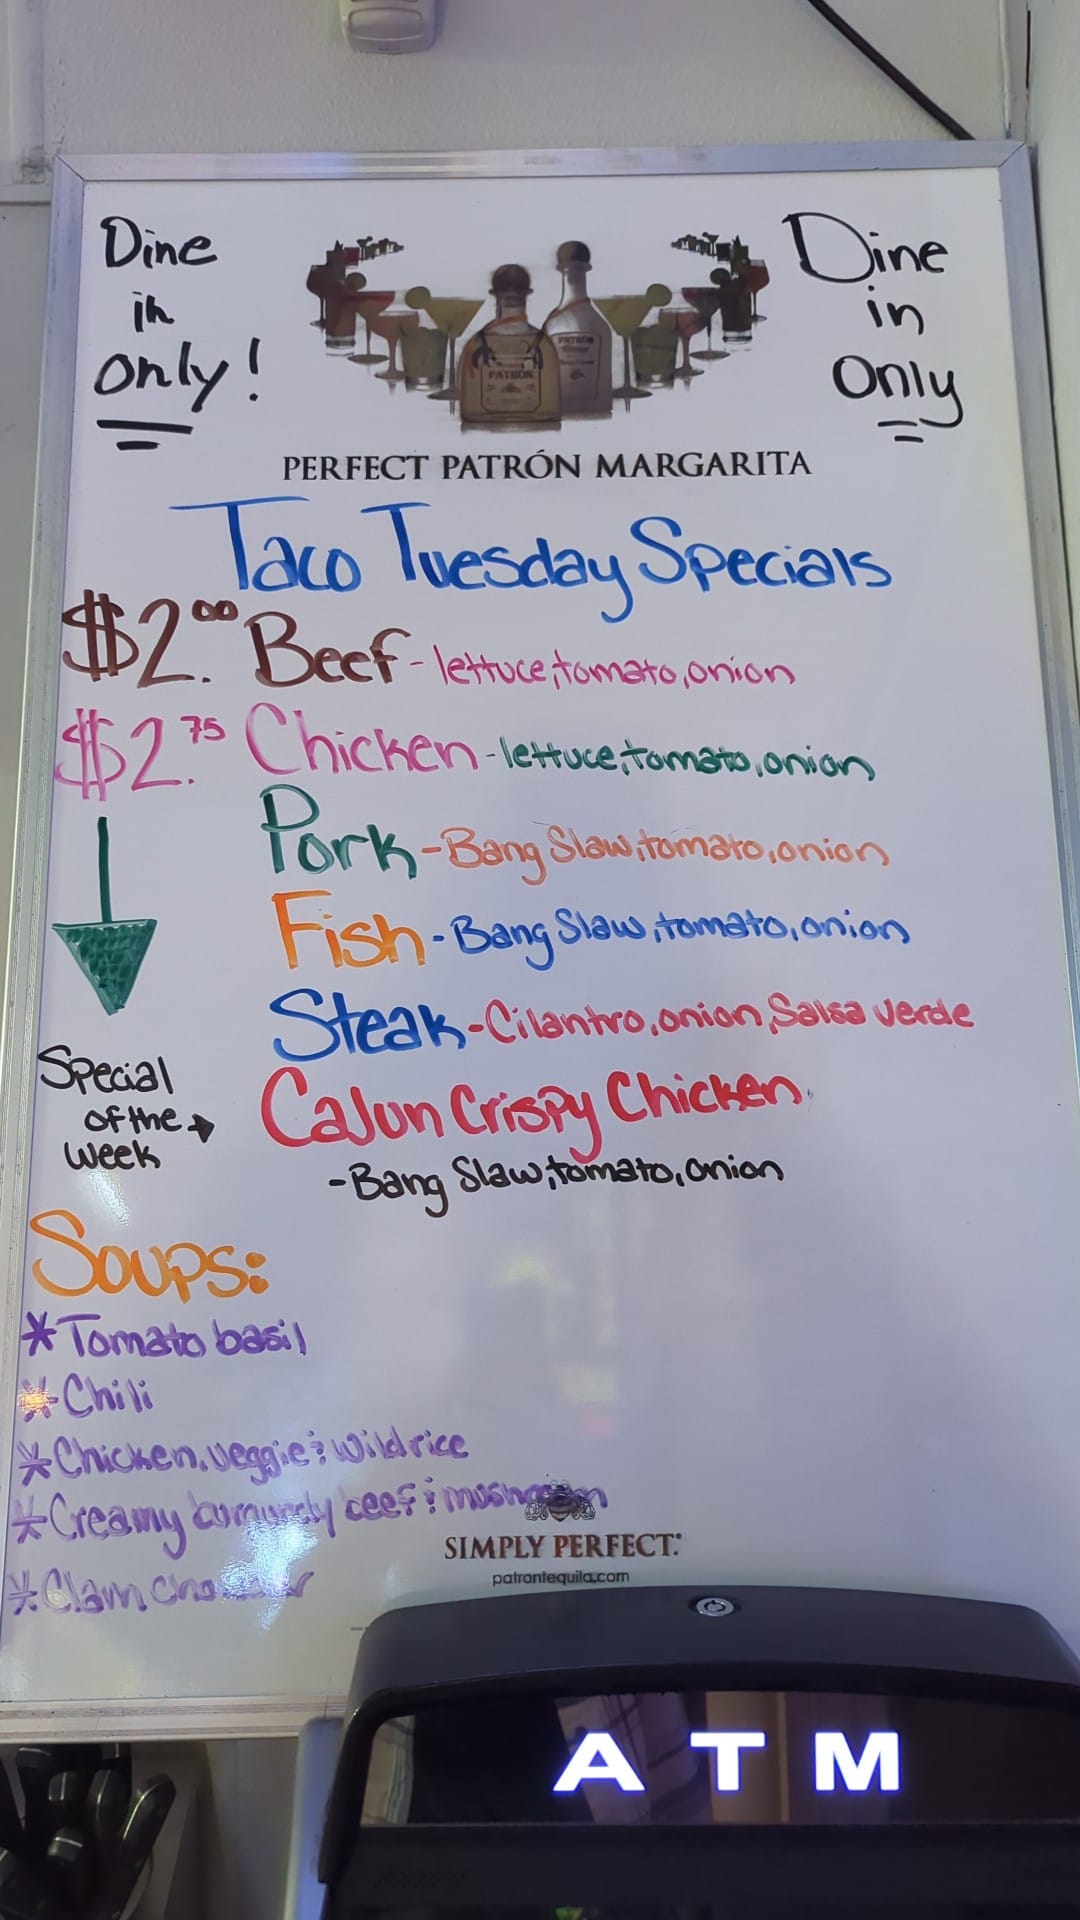 Dine
in
only!
Dine
in
Only
PATRÓN
PATRÓN
PERFECT PATRÓN MARGARITA
Taco Tuesday Specials
$2.00 Beef - lettuce, tomato, onion
$2.75 Chicken - lettuce, tomato, onion
Pork - Bang Slaw, tomato, onion
Fish - Bang Slaw, tomato, onion
Steak - Cilantro, onion, Salsa verde
Special
of the
week
Cajun Crispy Chicken
- Bang Slaw, tomato, onion
Soups:
* Tomato basil
* Chili
* Chicken, veggie & wild rice
* Creamy burgundy beef & mushroom
* Clam Chowder
SIMPLY PERFECT.
patrontequila.com
ATM